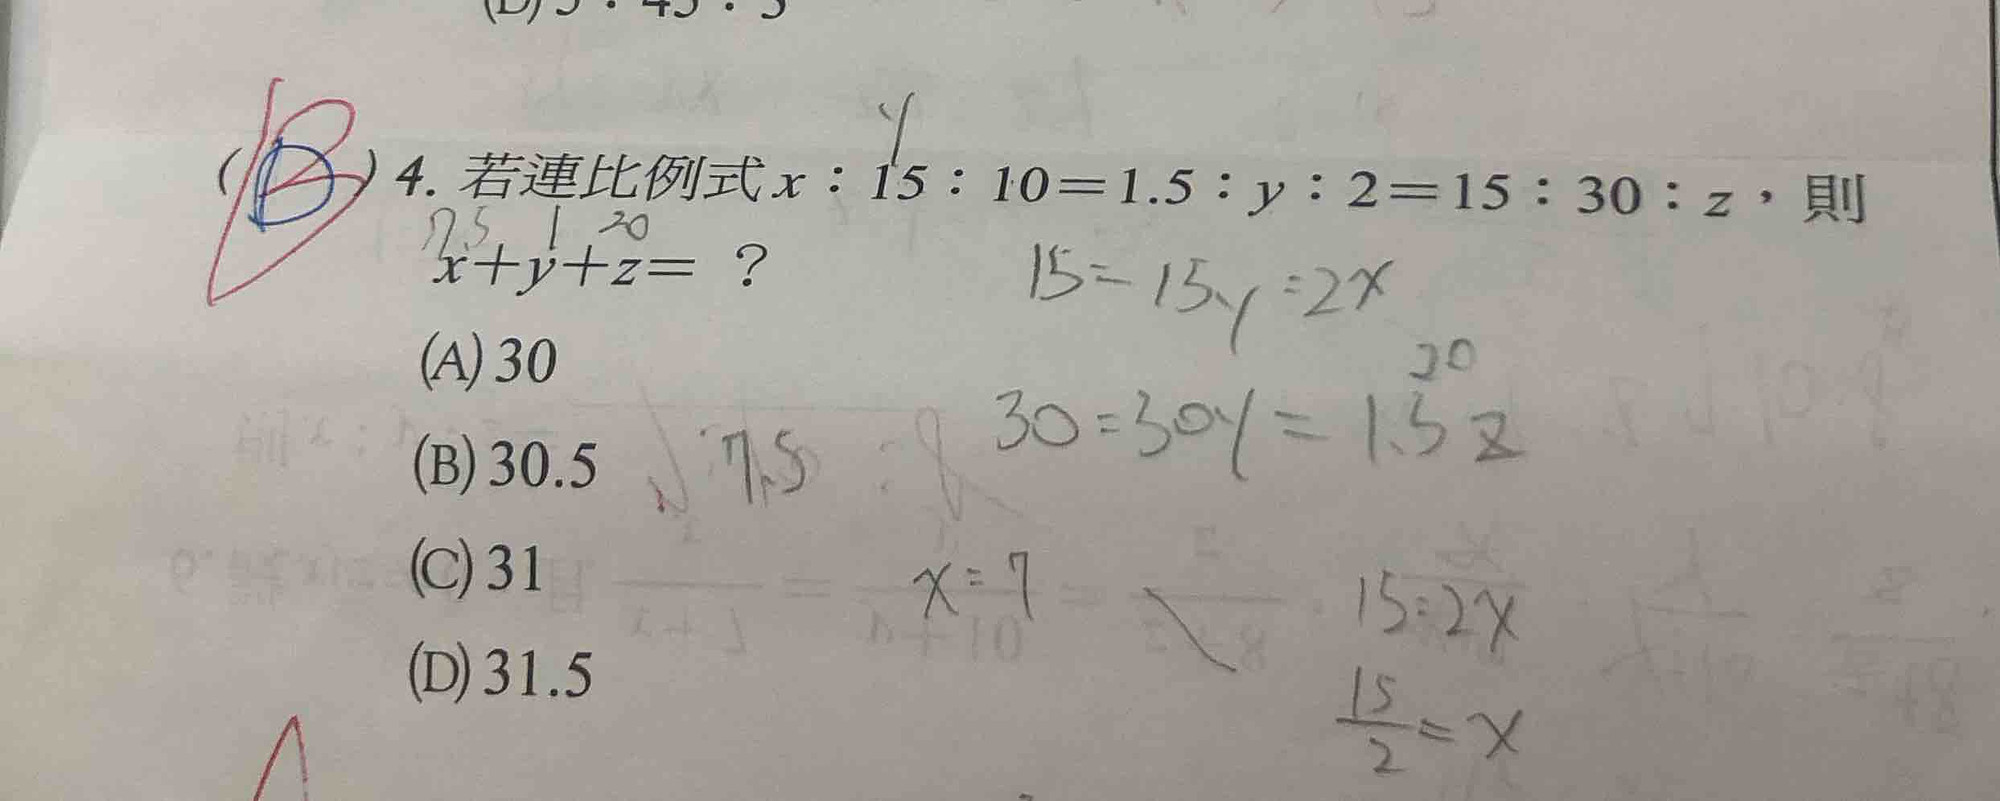 (D) 5：45：3
y
(D) 4. 若連比例式 x：15：10＝1.5：y：2＝15：30：z，則
7.5 1 20
x＋y＋z＝？
15=15y=2x
(A) 30
20
30=30y=1.5z
(B) 30.5
7.5
(C) 31
x=7
15=2x
(D) 31.5
15/2=x